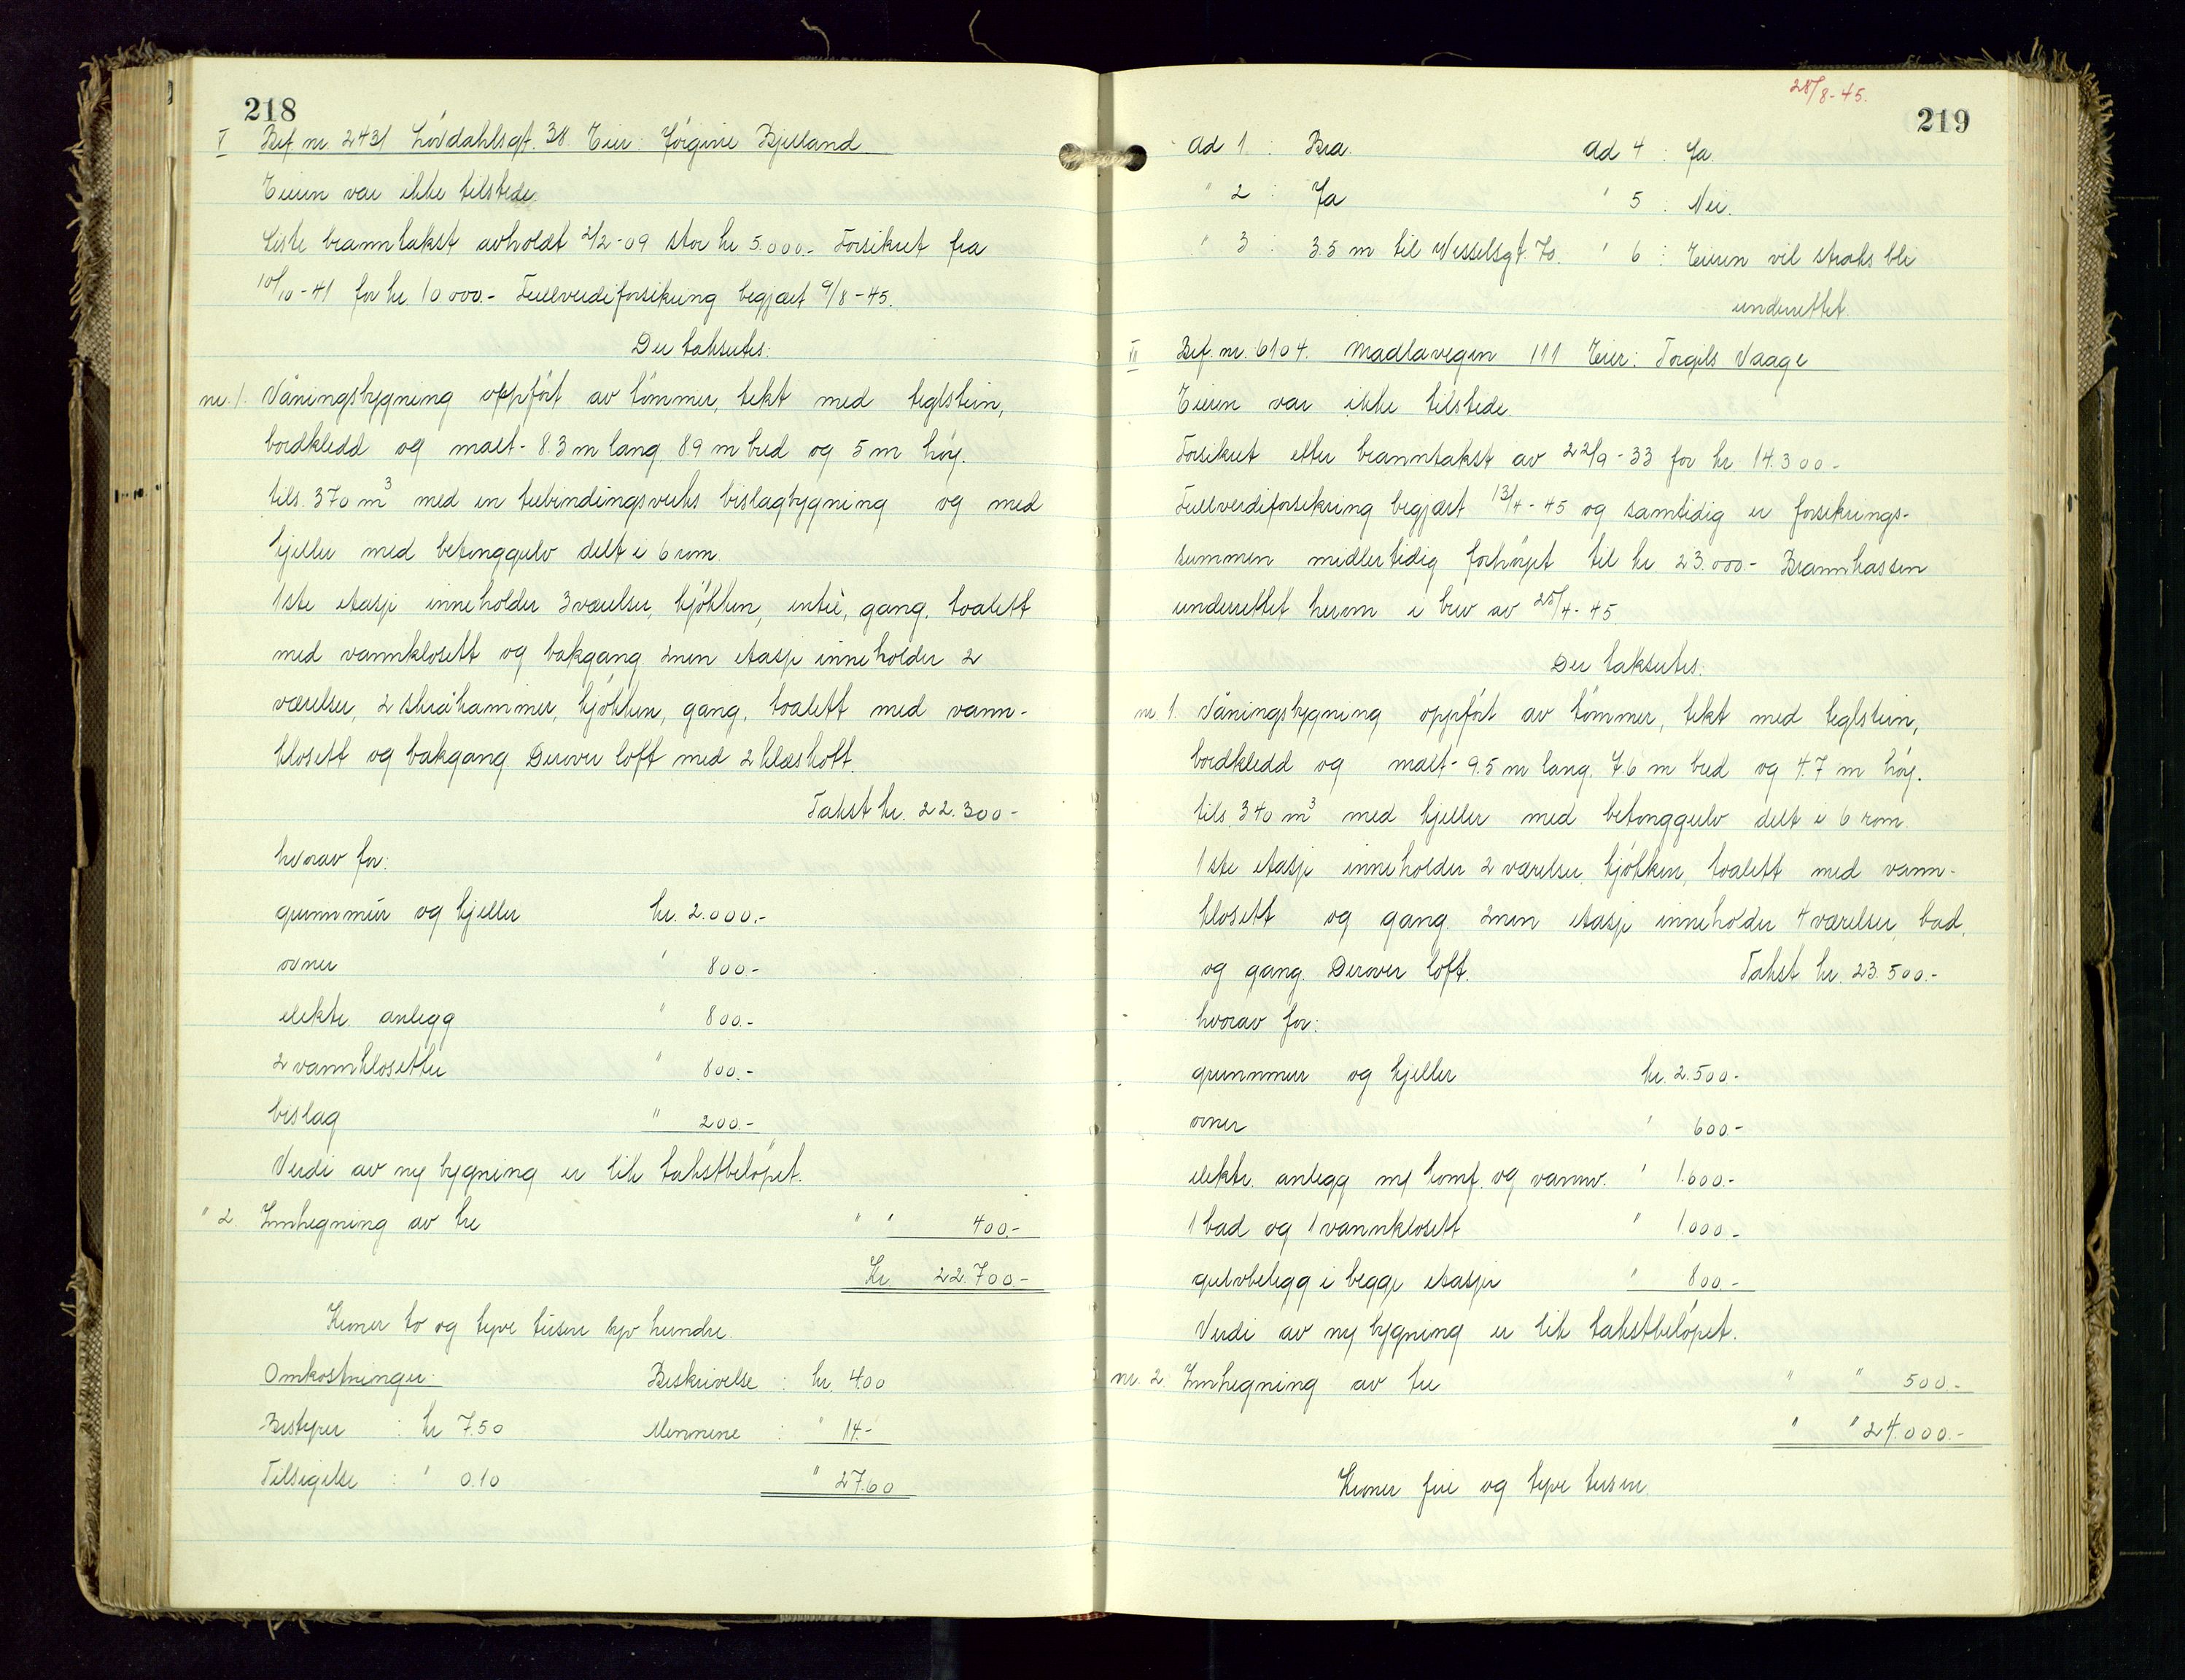 218
V Bef. nr 2431 Løvdahlsgt. 38. Eier: Jørgine Bjelland
Eieren var ikke tilstede.
Siste branntakst avholdt 2/2-09 stor kr 5.000.- Forsikret fra
10/10-41 for kr 10 000.- Fullverdiforsikring begjært 9/8-45.
Der takseres:
nr. 1. Våningsbygning oppført av tømmer, tekt med teglstein,
bordkledd og malt - 8.3 m lang 8.9 m bred og 5 m høy.
tils. 370 m3 med en utbindingsverks bislagbygning og med
kjeller med betonggulv delt i 6 rom.
1ste etasje inneholder 3 værelser, kjøkken, entré, gang, toalett
med vannklosett og bakgang 2nen etasje inneholder 2
værelser, 2 skråkammer, kjøkken, gang, toalett med vann-
klosett og bakgang Derover loft med 2 kleskott.
Takst kr. 22.300-
hvorav for:
grunnmur og kjeller kr. 2.000.-
ovner " 800.-
elektr. anlegg " 800.-
2 vannklosetter " 800.-
bislag " 200.-
Verdi av ny bygning er lik takstbeløpet.
" 2 Innhegning av tre " " 400.-
Kr. 22.700.-
Kroner to og tyve tusen syv hundre.
Omkostninger: Beskrivelse : kr. 4.00
Bestyrer : kr 7.50 Mennene : " 14.-
Tilsigelse : " 0.10 " 27.60
28/8-45.
219
Ad 1 : Bra. Ad 4 : Ja.
" 2 : Ja " 5 : Nei.
" 3 : 3.5 m til Wesselsgt. 70. " 6 : Eieren vil straks bli
underrettet
VI Bef. nr. 6104. Madlavegen 111 Eier: Torgils Vaage
Eieren var ikke tilstede.
Forsikret etter branntakst av 22/9-33 for kr 14.300-
Fullverdiforsikring begjært 13/4-45 og samtidig er forsikrings-
summen midlertidig forhøyet til kr 23.000- Brannkassen
underrettet herom i brev av 25/4-45
Der takseres.
nr. 1. Våningsbygning oppført av tømmer, tekt med teglstein,
bordkledd og malt - 9.5 m lang, 7.6 m bred og 4.7 m høy.
tils. 340 m3 med kjeller med betonggulv delt i 6 rom
1ste etasje inneholder 2 værelser, kjøkken, toalett med vann-
klosett og gang. 2nen etasje inneholder 4 værelser, bad,
og gang. Derover loft. Takst kr. 23.500.-
hvorav for:
grunnmur og kjeller kr. 2.500-
ovner " 600.-
elektr. anlegg m/ komf. og vannv. " 1.600.-
1 bad og 1 vannklosett " 1.000.-
gulvbelegg i begge etasjer " 800.-
Verdi av ny bygning er lik takstbeløpet.
nr. 2. Innhegning av tre " " 500.-
" " 24.000.-
Kroner fire og tyve tusen.